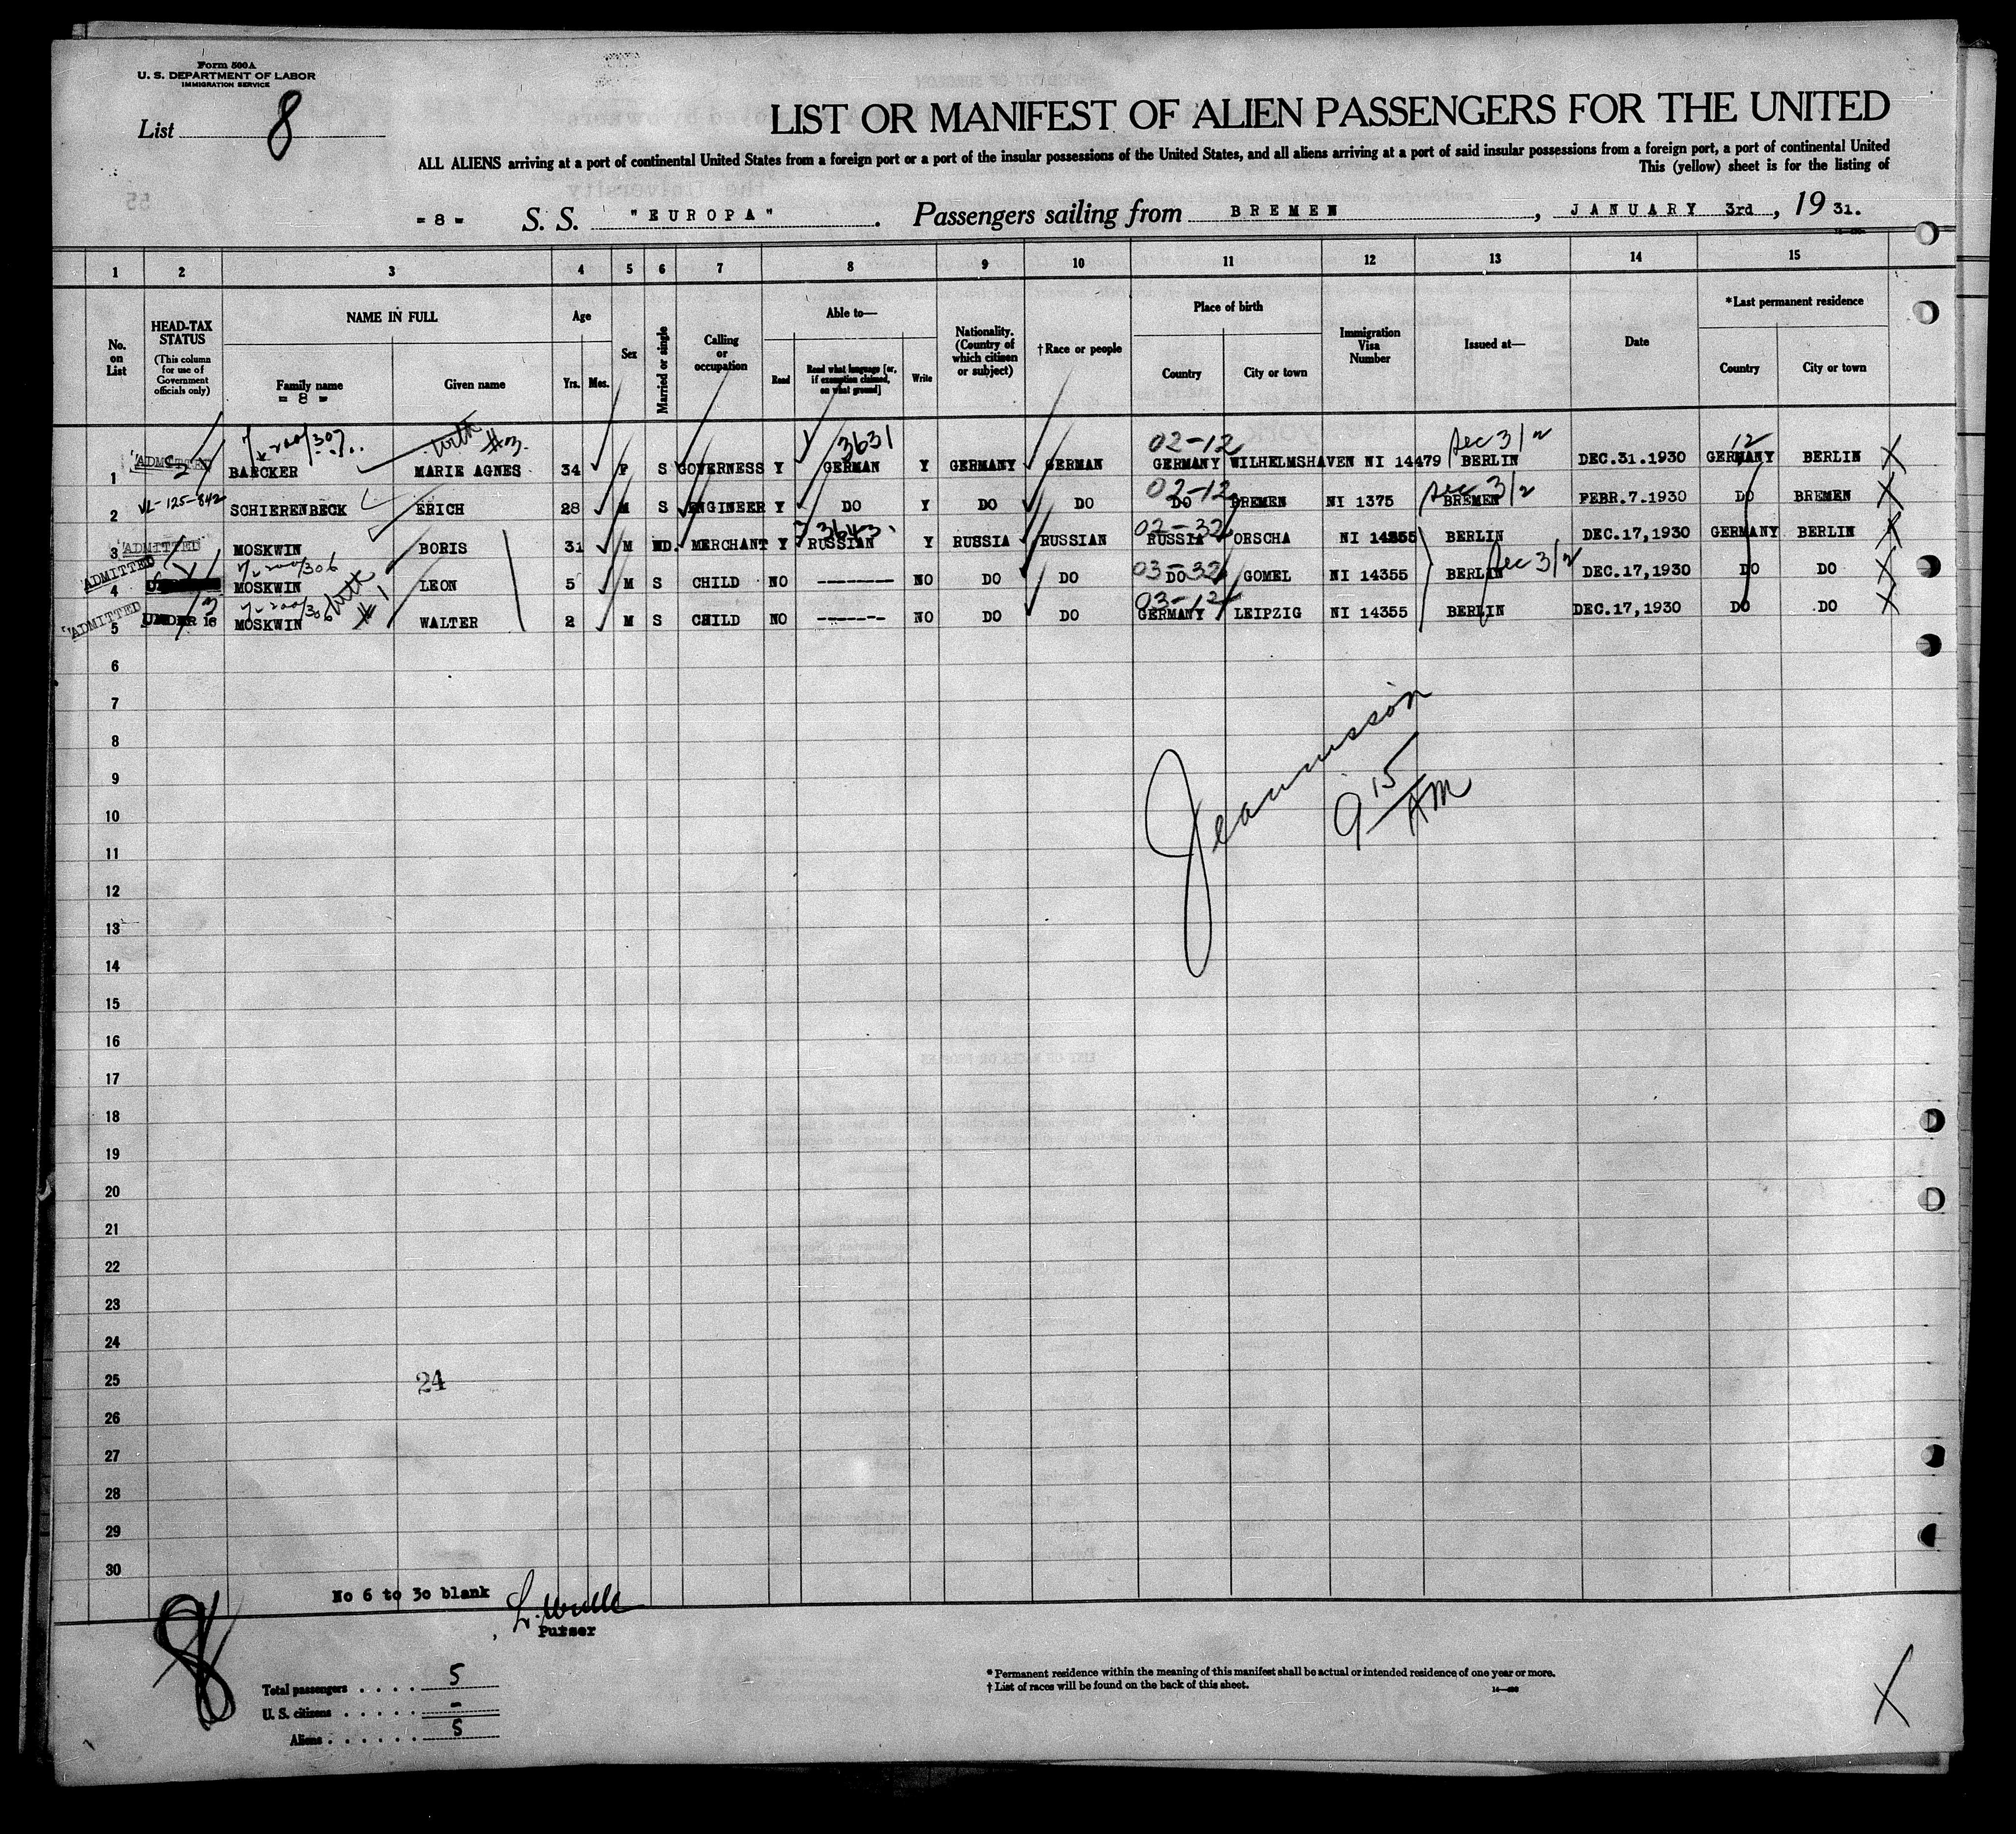 Form 500A
U. S. DEPARTMENT OF LABOR
IMMIGRATION SERVICE
List 8
LIST OR MANIFEST OF ALIEN PASSENGERS FOR THE UNITED
ALL ALIENS arriving at a port of continental United States from a foreign port or a port of the insular possessions of the United States, and all aliens arriving at a port of said insular possessions from a foreign port, a port of continental United
This (yellow) sheet is for the listing of
= 8 = S. S. "EUROPA". Passengers sailing from BREMEN, JANUARY 3rd, 19 31.
1 2 3 4 5 6 7 8 9 10 11 12 13 14 15
No. on List
HEAD-TAX STATUS
(This column for use of Government officials only)
NAME IN FULL
Family name
= 8 =
Given name
Age
Yrs. Mos.
Sex
Married or single
Calling or occupation
Able to—
Read
Read what language [or, if exemption claimed, on what ground]
Write
Nationality. (Country of which citizen or subject)
†Race or people
Place of birth
Country
City or town
Immigration Visa Number
Issued at—
Date
*Last permanent residence
Country
City or town
with #3 3631 02-12 Sec 3/2 12
1 ADMITTED BARCKER MARIE AGNES 34 F S GOVERNESS Y GERMAN Y GERMANY GERMAN GERMANY WILHELMSHAVEN NI 14479 BERLIN DEC.31.1930 GERMANY BERLIN
02-12 Sec 3/2
2 VL-125-842 SCHIERENBECK ERICH 28 M S ENGINEER Y DO Y DO DO DO BREMEN NI 1375 BREMEN FEBR.7.1930 DO BREMEN
02-32
3 ADMITTED MOSKWIN BORIS 31 M MD. MERCHANT Y RUSSIAN Y RUSSIA RUSSIAN RUSSIA ORSCHA NI 14355 BERLIN DEC.17,1930 GERMANY BERLIN
03-32 Sec 3/2
4 ADMITTED MOSKWIN LEON 5 M S CHILD NO -------- NO DO DO DO GOMEL NI 14355 BERLIN DEC.17,1930 DO DO
with #1 03-12
5 ADMITTED UNDER 16 MOSKWIN WALTER 2 M S CHILD NO ------- NO DO DO GERMANY LEIPZIG NI 14355 BERLIN DEC.17,1930 DO DO
6
7
8
9
10
9 15 AM
11
12
13
14
15
16
17
18
19
20
21
22
23
24
25 24
26
27
28
29
30
No 6 to 30 blank
Purser
8
Total passengers . . . . 5
U. S. citizens . . . . . –
Aliens . . . . . . 5
* Permanent residence within the meaning of this manifest shall be actual or intended residence of one year or more.
† List of races will be found on the back of this sheet.
X